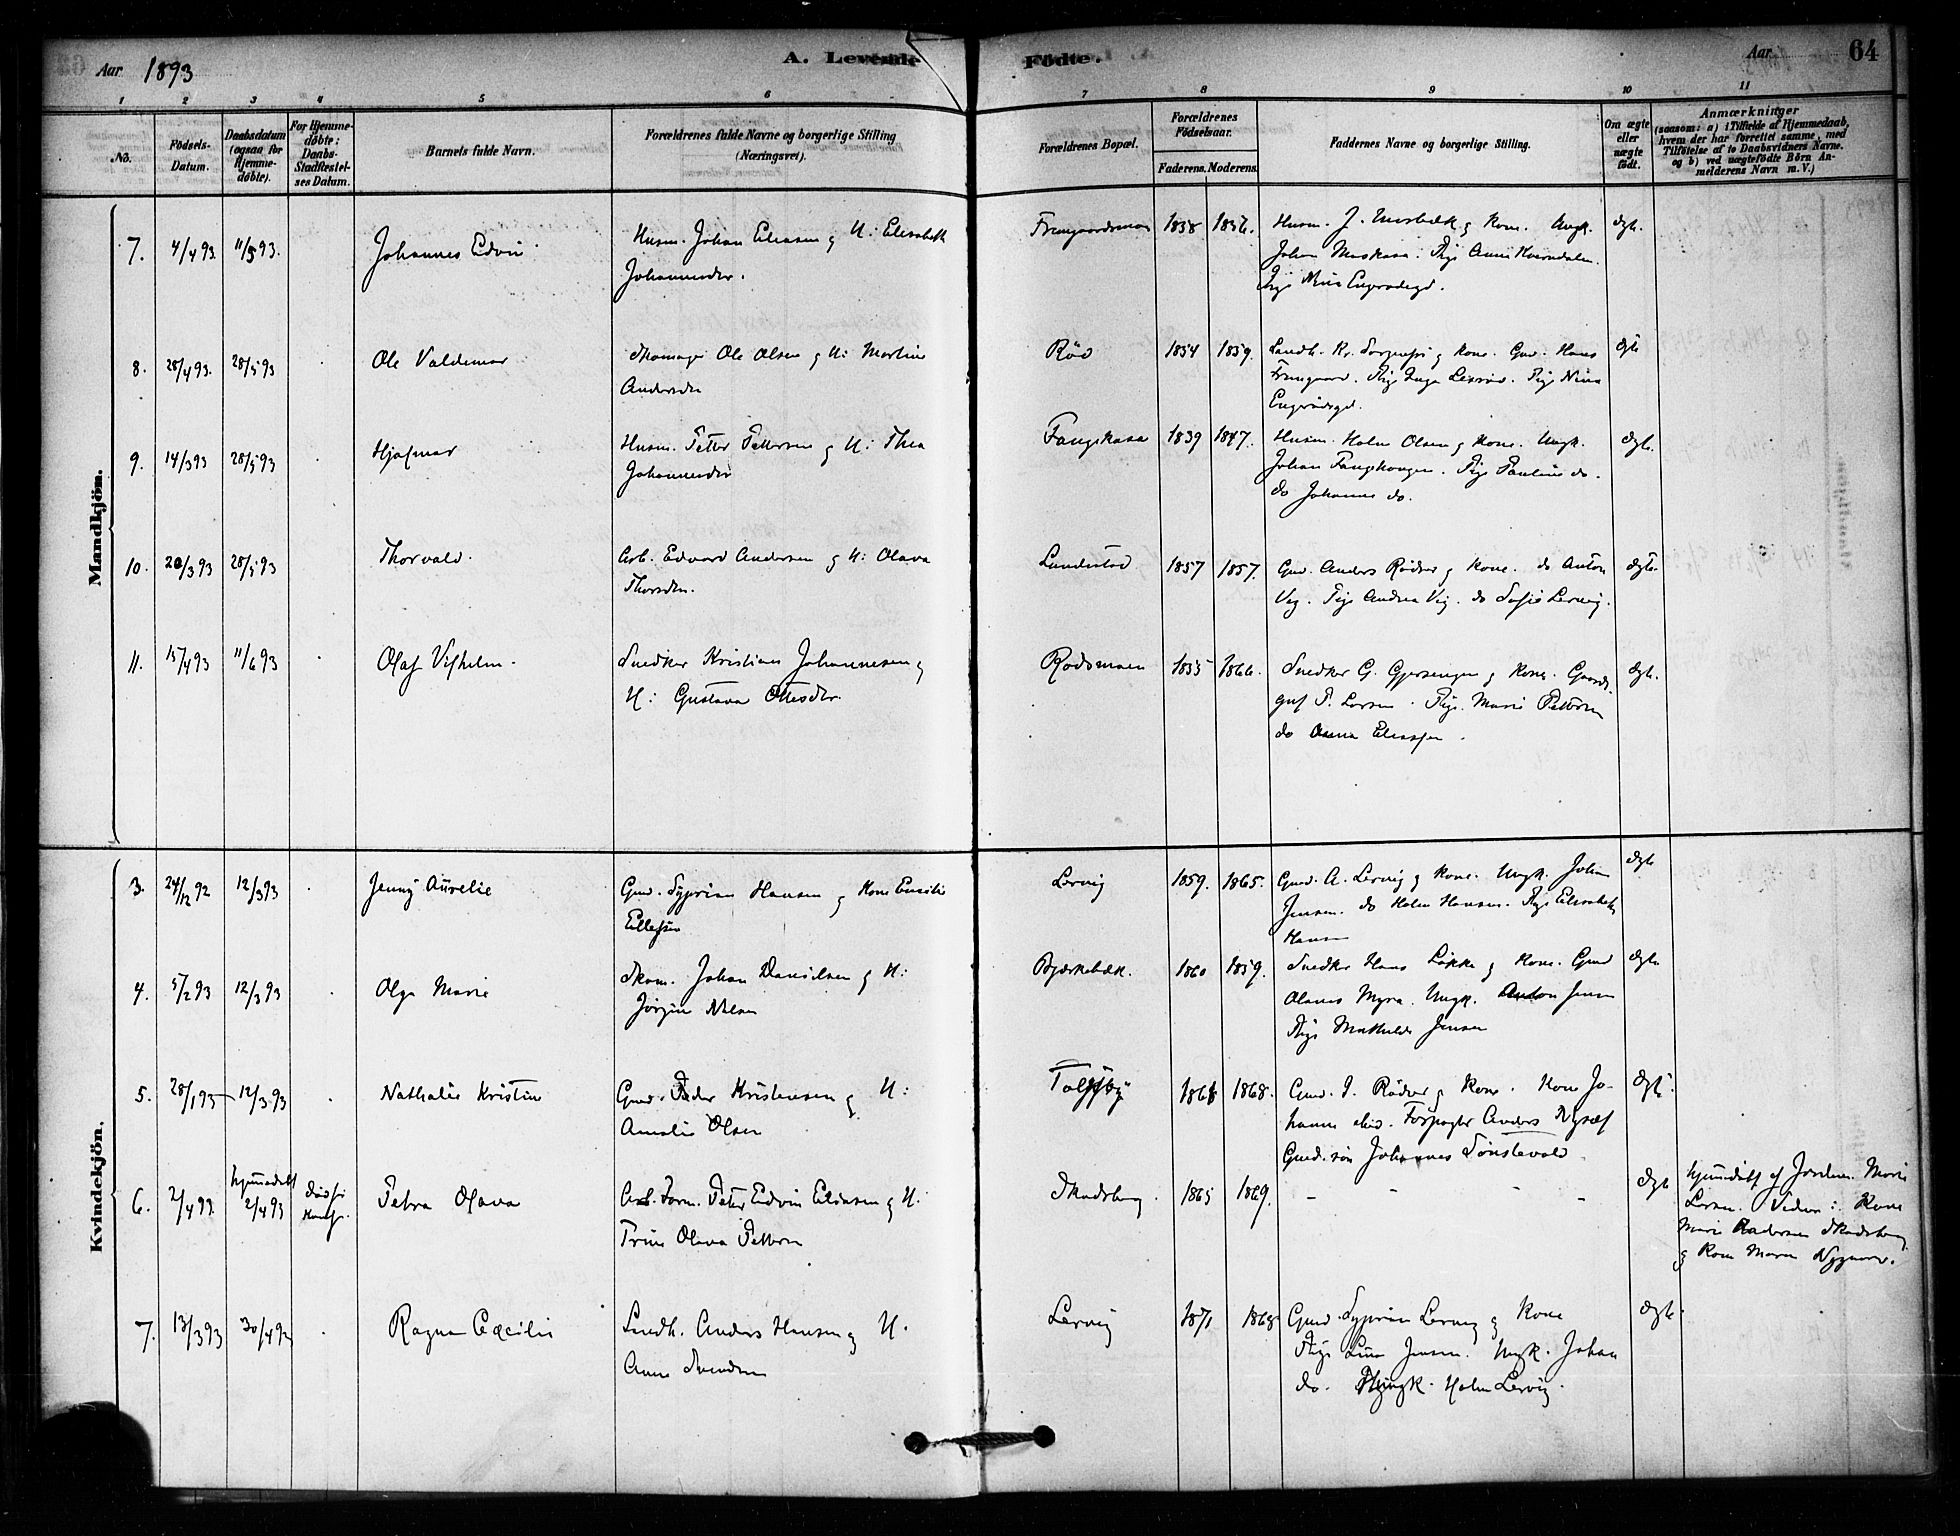 Aar 1893
A. Levende
Födte.
Aar
64
1 2 3 4 5 6 7 8 9 10 11
No.
Födsels-
Datum.
Daabsdatum
(ogsaa for
Hjemme-
döbte).
For Hjemme-
döbte:
Daabs-
Stadfæstel-
ses Datum.
Barnets fulde Navn.
Forældrenes fulde Navne og borgerlige Stilling
(Næringsvei).
Forældrenes Bopæl.
Forældrenes
Födselsaar.
Faderens. Moderens.
Faddernes Navne og borgerlige Stilling.
Om ægte
eller
uægte
födt.
Anmærkninger
(saasom: a) i Tilfælde af Hjemmedaab,
hvem der har forrettet samme, med
Tilföielse af to Daabsvidners Navne.
og b) ved uægtefödte Börn An-
melderens Navn m. V.)
Mandkjön.
7. 4/4 93. 11/5 93. Johannes Edvin Husm. Johan Eliasen og H: Elisabeth
Johannesdtr. 1838 1836. Husm. J. og Kone. Ungk.
Johan. Pige
Pige Nina Engerødegd. ægte.
8. 28/4 93. 28/5 93 Ole Valdemar Skomager Ole Olsen og H: Martine
Andersdtr Röd 1854 1859. Landh. Kr. og Kone. Gmd. Hans
Fremgaard. Pige Inga. Pige Nina
Engerödegd. ægte
9. 14/3 93 28/5 93 Hjalmar Husm. Petter Pettersen og H: Thea
Johannesdtr Fangekasa 1839 1847. Husm. Holm Olsen og Kone. Ungk.
Johan. Pige Pauline do.
do Johanne do. ægte.
10. 20/3 93 28/5 93 Thorvald. Arb. Edvard Andersen og H: Olava
Thorsdtr. Lundestad 1857 1857. Gmd. Anders Rödser og Kone. do Anton
Vig. Pige Andrea Vig. do Sofie Lervig. ægte.
11. 15/4 93 11/6 93 Olaf Vilhelm. Snedker Kristian Johannesen og
H: Gustava Ottesdtr. Rodsmoen 1835 1866. Snedker G. og Kone. Gaards-
P. Larsen. Pige Marie Pettersen
do Anna ægte.
Kvindekjön.
3. 24/12 92 12/3 93 Jenny Aurelie Gmd. Syprian Hansen og Kone Emilie
Ellefsen Lervig 1859. 1865. Gmd. A. Lervig og Kone. Ungk. Johan
Jensen. do Holm Hansen. Pige Elisabeth
Hansen ægte
4. 5/2 93 12/3 93 Olga Marie Skom. Johan Danielsen og H:
Jörgine Nilsen Bjerkebæk. 1860 1859. Snedker Hans Løkke og Kone. Gmd
Olaves Myra. Ungk. Anton Jensen
Pige Mathilde Jensen ægte
5. 28/1 93 12/3 93 Nathalie Kristine Gmd. Peder Kristensen og H:
Amalie Olsen 1868 1868. Gmd. J. Rödser og Kone. Kone Jo-
hanne. Forpagter Anders
Gmd. sön Johannes Tönstevold ægte.
6. 2/4 93. hjemmedöbt
2/4 93 död för
Petra Olava Arb. Peter Edvin Eliasen og H:
Trine Olava Pettersen Skadsberg. 1865 1869. - - - - ægte hjemmedöbt af Jordem. Marie
Larsen. Vidner: Kone
Marie Skadsberg
og Kone Maren Nygaard.
7. 13/3 93 30/4 93 Ragna Cæcilie Landh. Anders Hansen og H.
Anne Svendsen Lervig 1871 1868 Gmd Syprian Lervig og Kone
Pige Lina Jensen. Ungk. Johan
do. Ungk. Holm Lervig. ægte.